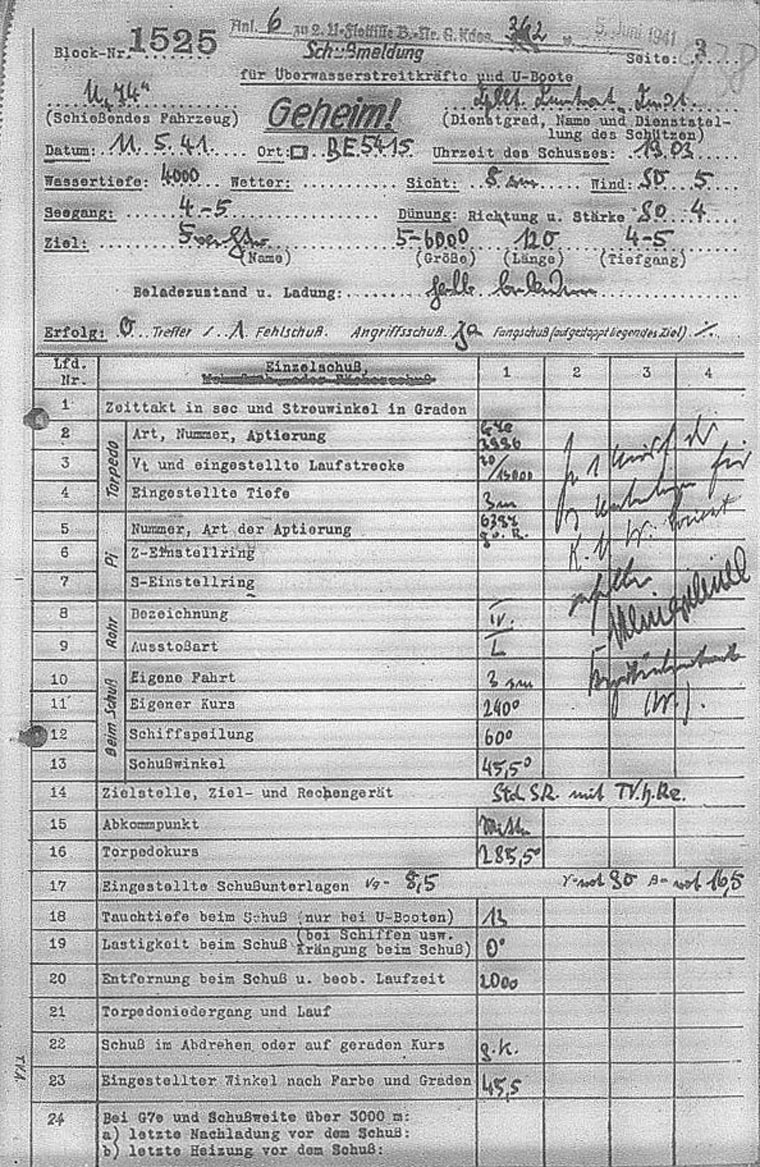 Anl. 6 zu 2. U-Flottille B.-Nr. G. Kdos. 5. Juni 1941
Block-Nr. 1525 Schußmeldung Seite: 3
für Überwasserstreitkräfte und U-Boote
U„74“ Geheim!
(Schießendes Fahrzeug) (Dienstgrad, Name und Dienststel-
lung des Schützen)
Datum: 11. 5. 41. Ort: BE 5415 Uhrzeit des Schusses: 19.03
Wassertiefe: 4000 Wetter: Sicht: 8 sm Wind: SO 5
Seegang: 4-5 Dünung: Richtung u. Stärke SO 4
Ziel: 5-6000 120 4-5
(Name) (Größe) (Länge) (Tiefgang)
Beladezustand u. Ladung: beladen
Erfolg: 0 Treffer / 1 Fehlschuß. Angriffsschuß. ja Fangschuß (auf gestoppt liegendes Ziel) ./.
Lfd. Nr. Einzelschuß, 1 2 3 4
1 Zeittakt in sec und Streuwinkel in Graden
Torpedo
2 Art, Nummer, Aptierung G7e
3 Vt und eingestellte Laufstrecke 30
4 Eingestellte Tiefe 3m
Pi
5 Nummer, Art der Aptierung
6 Z-Einstellring
7 S-Einstellring
Rohr
8 Bezeichnung IV.
9 Ausstoßart L
Beim Schuß
10 Eigene Fahrt 3 sm
11 Eigener Kurs 240°
12 Schiffspeilung 60°
13 Schußwinkel 45,5°
14 Zielstelle, Ziel- und Rechengerät Std. S.R. mit T.V.h.Re.
15 Abkommpunkt Mitte
16 Torpedokurs 285,5°
17 Eingestellte Schußunterlagen Vg- 8,5 γ-rot 90 β= rot 16,5
18 Tauchtiefe beim Schuß (nur bei U-Booten) 13
19 Lastigkeit beim Schuß (bei Schiffen usw. Krängung beim Schuß) 0°
20 Entfernung beim Schuß u. beob. Laufzeit 2000
21 Torpedoniedergang und Lauf
22 Schuß im Abdrehen oder auf geraden Kurs g.K.
23 Eingestellter Winkel nach Farbe und Graden 45,5
24 Bei G7e und Schußweite über 3000 m:
a) letzte Nachladung vor dem Schuß:
b) letzte Heizung vor dem Schuß: